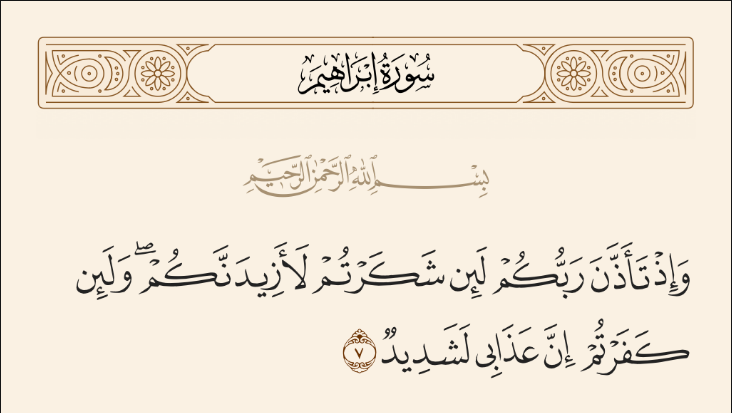 سُورَةُ إِبْرَاهِيمَ
بِسْمِ اللَّهِ الرَّحْمَٰنِ الرَّحِيمِ
وَإِذْ تَأَذَّنَ رَبُّكُمْ لَئِن شَكَرْتُمْ لَأَزِيدَنَّكُمْ ۖ وَلَئِن
كَفَرْتُمْ إِنَّ عَذَابِى لَشَدِيدٌ ٧